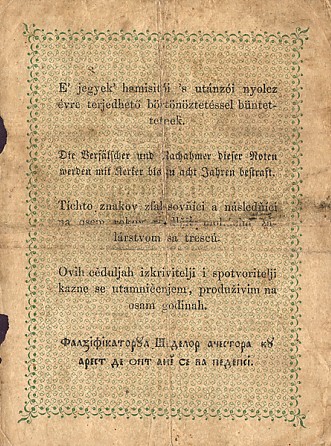 E' jegyek' hamisitói 's utánzói nyolcz
évre terjedhető börtönöztetéssel büntet-
tetnek.
Die Verfälscher und Nachahmer dieser Noten
werden mit Kerker bis zu acht Jahren bestraft.
Tichto znakov zfalšovníci a následníci
na osem rokov
lárstvom sa trescú.
Ovih céduljah izkrivitelji i spotvoritelji
kazne se utamničenjem, produživim na
osam godinah.
Фалзіфікаторꙋл Ші делор ачестора кꙋ
арест де опт анĭ се ва педепсі.